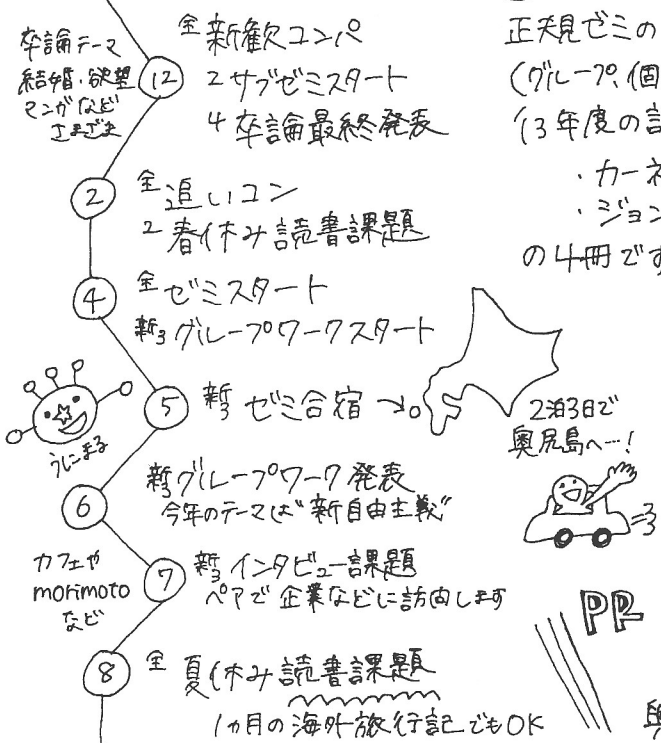 卒論テーマ
結婚・欲望
マンガなど
さまざま
12
全 新歓コンパ
2 サブゼミスタート
4 卒論最終発表
2
全 追いコン
2 春休み読書課題
4
全 ゼミスタート
新3 グループワークスタート
5
新3 ゼミ合宿
うにまる
2泊3日で
奥尻島へ…!
6
新3 グループワーク発表
今年のテーマは"新自由主義"
カフェや
morimoto
など
7
新3 インタビュー課題
ペアで企業などに訪向します
8
全 夏休み読書課題
1ヵ月の海外旅行記でもOK
正規ゼミの
(グループ、個
(13年度の
・カーネ
・ジョン
の4冊です
PR